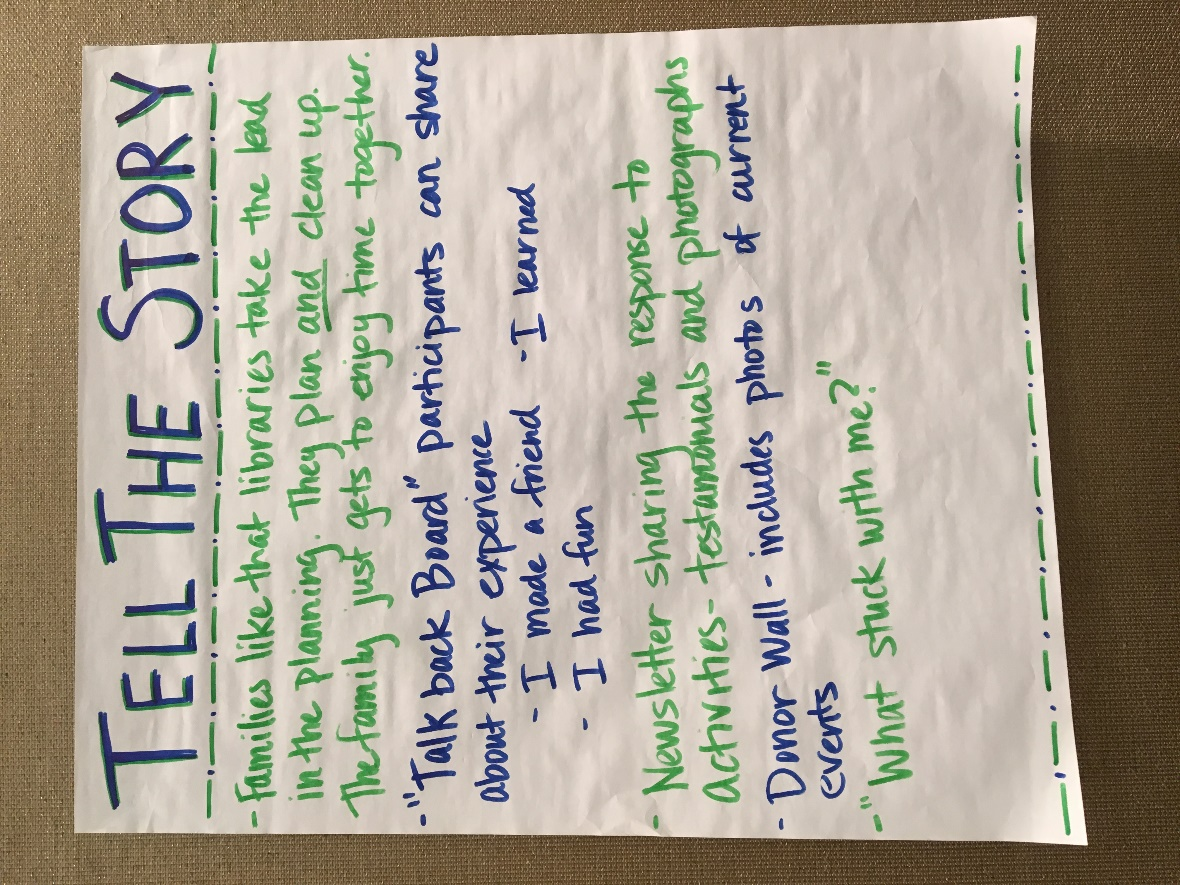 TELL THE STORY
- Families like that libraries take the lead
in the planning. They plan and clean up.
The family just gets to enjoy time together.
- "Talk back Board" participants can share
about their experience
- I made a friend - I learned
- I had fun
- Newsletter sharing the response to
activities - testamonials and photographs
- Donor Wall - includes photos of current
events
- "What stuck with me?"